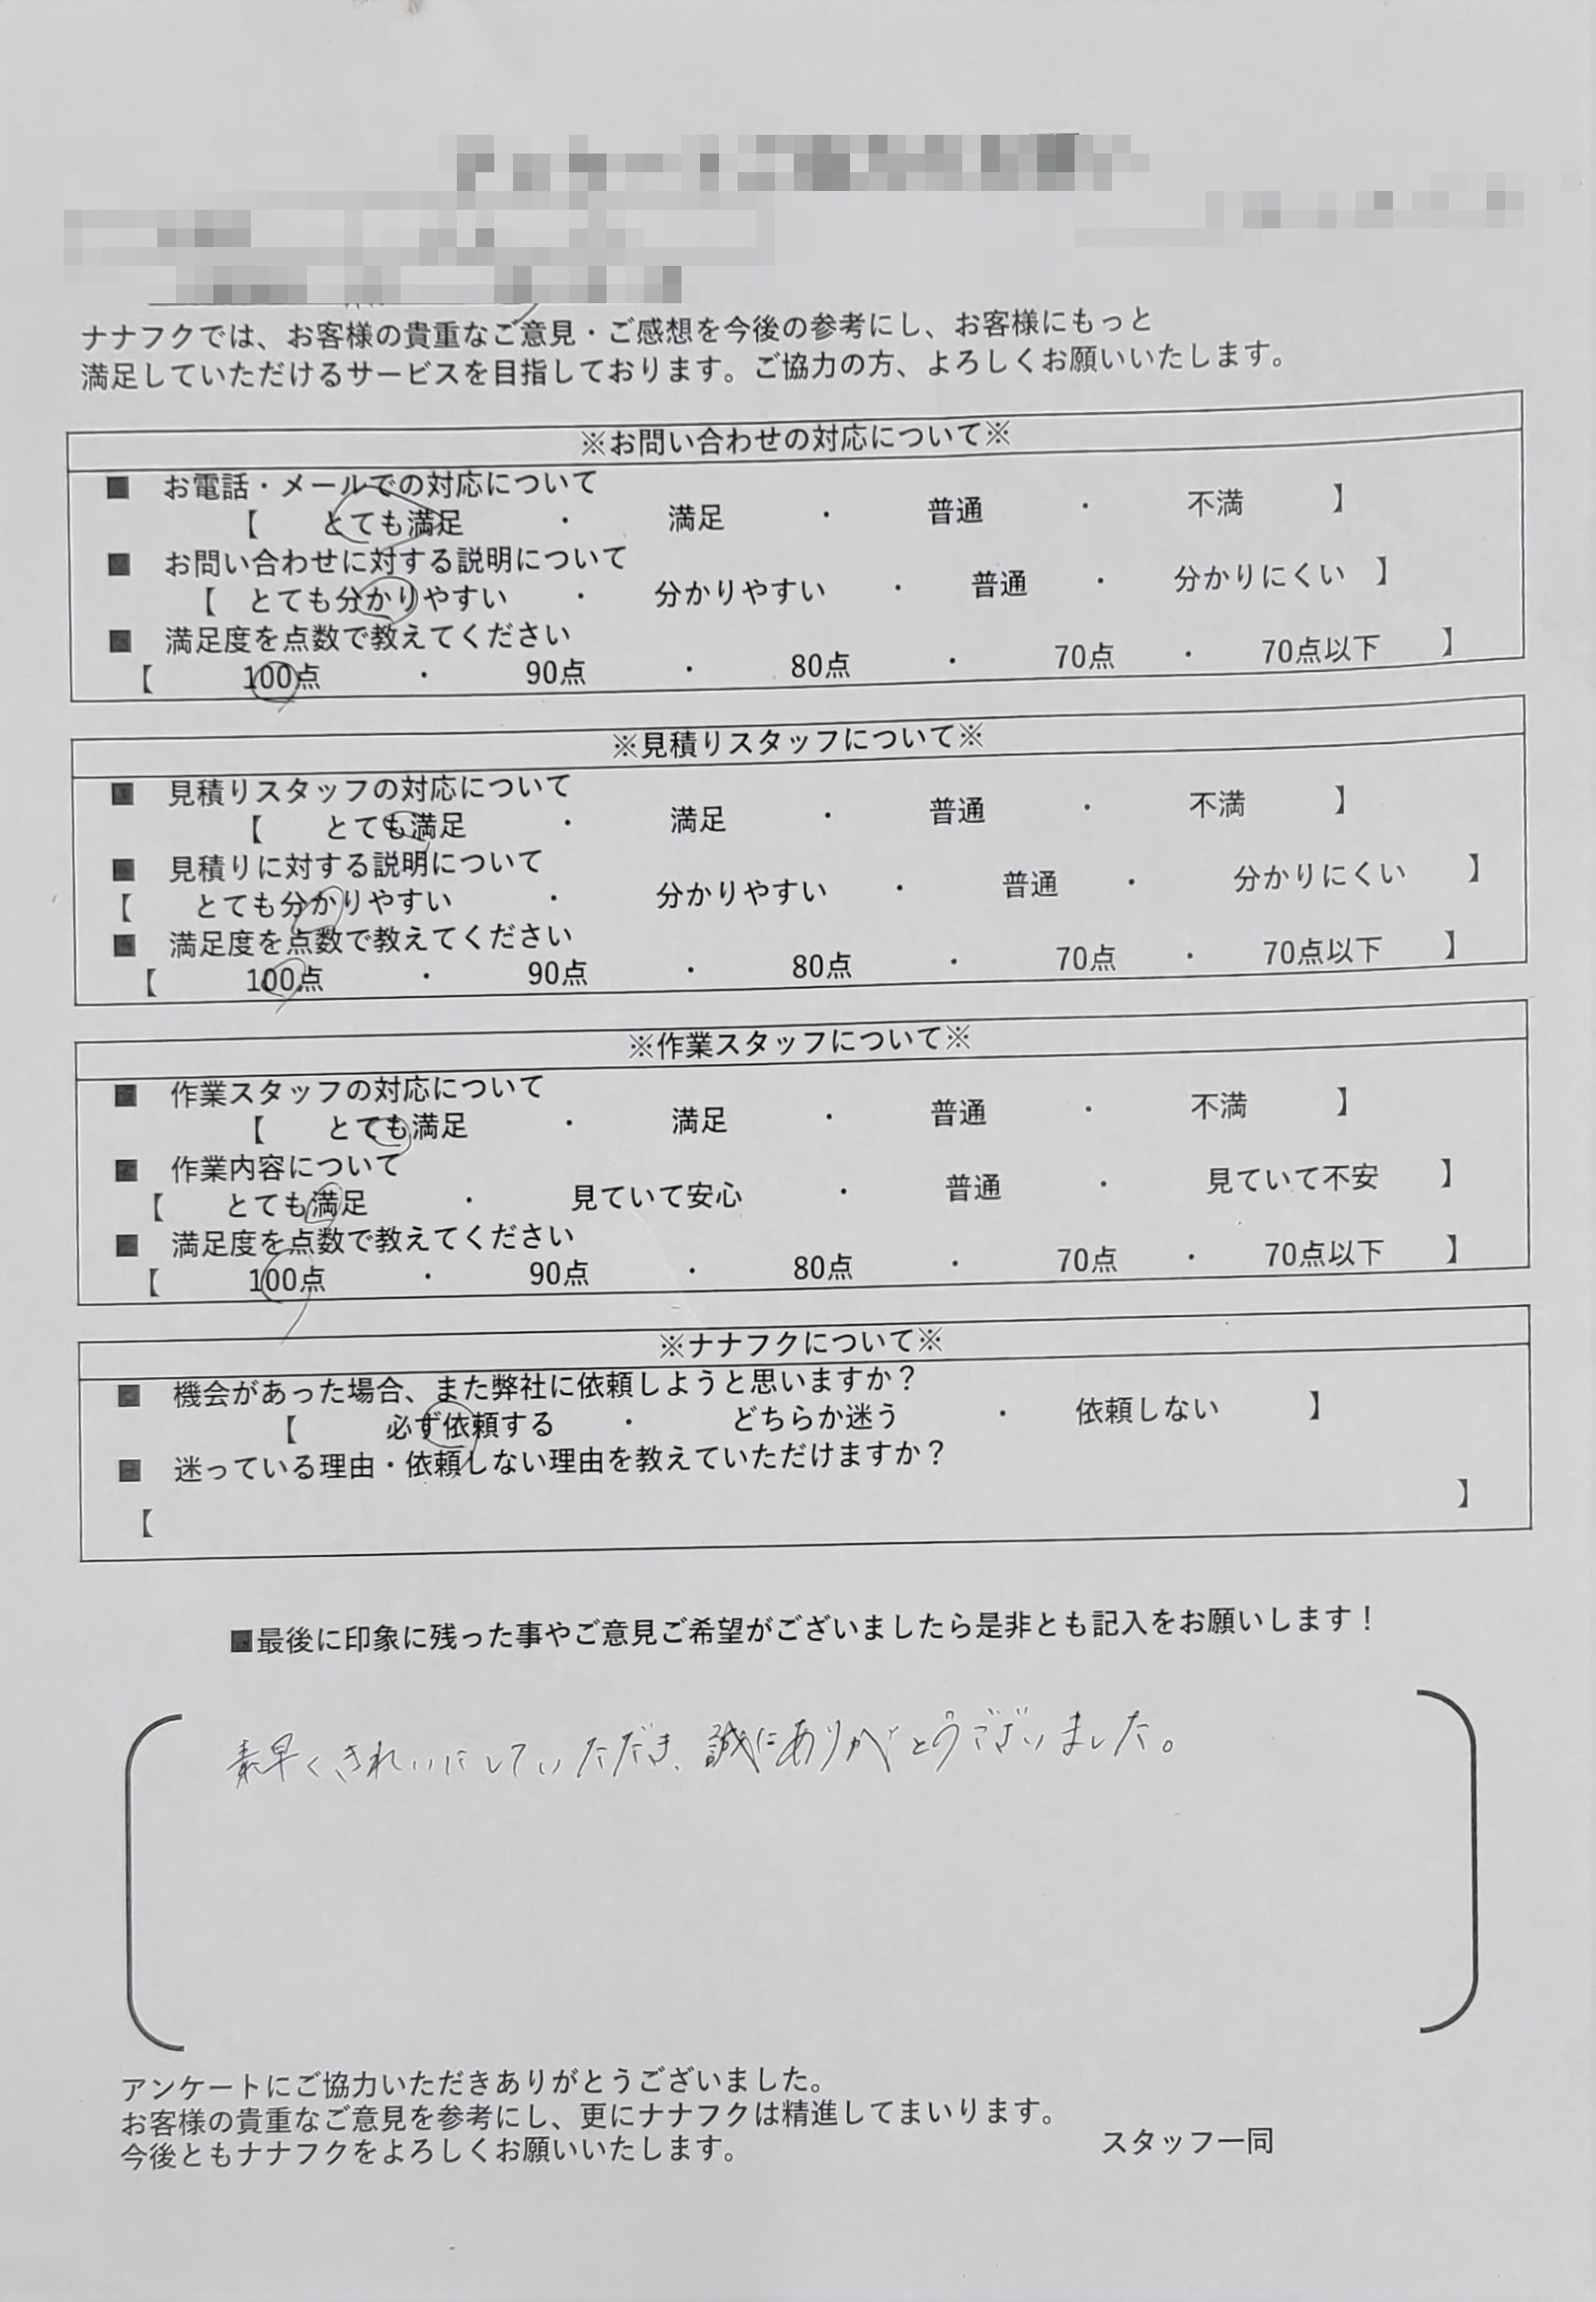 ナナフクでは、お客様の貴重なご意見・ご感想を今後の参考にし、お客様にもっと
満足していただけるサービスを目指しております。ご協力の方、よろしくお願いいたします。
※お問い合わせの対応について※
■ お電話・メールでの対応について
【 とても満足 ・ 満足 ・ 普通 ・ 不満 】
■ お問い合わせに対する説明について
【 とても分かりやすい ・ 分かりやすい ・ 普通 ・ 分かりにくい 】
■ 満足度を点数で教えてください
【 100点 ・ 90点 ・ 80点 ・ 70点 ・ 70点以下 】
※見積りスタッフについて※
■ 見積りスタッフの対応について
【 とても満足 ・ 満足 ・ 普通 ・ 不満 】
■ 見積りに対する説明について
【 とても分かりやすい ・ 分かりやすい ・ 普通 ・ 分かりにくい 】
■ 満足度を点数で教えてください
【 100点 ・ 90点 ・ 80点 ・ 70点 ・ 70点以下 】
※作業スタッフについて※
■ 作業スタッフの対応について
【 とても満足 ・ 満足 ・ 普通 ・ 不満 】
■ 作業内容について
【 とても満足 ・ 見ていて安心 ・ 普通 ・ 見ていて不安 】
■ 満足度を点数で教えてください
【 100点 ・ 90点 ・ 80点 ・ 70点 ・ 70点以下 】
※ナナフクについて※
■ 機会があった場合、また弊社に依頼しようと思いますか？
【 必ず依頼する ・ どちらか迷う ・ 依頼しない 】
■ 迷っている理由・依頼しない理由を教えていただけますか？
【 】
■最後に印象に残った事やご意見ご希望がございましたら是非とも記入をお願いします！
素早くきれいにしていただき、誠にありがとうございました。
アンケートにご協力いただきありがとうございました。
お客様の貴重なご意見を参考にし、更にナナフクは精進してまいります。
今後ともナナフクをよろしくお願いいたします。
スタッフ一同